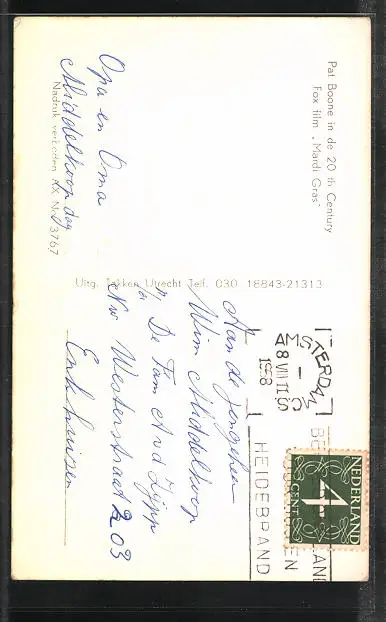 Pat Boone in de 20 th Century
Fox film „Mardi Gras"
Opa en Oma
Middelkoop
Nadruk verboden AX Nr 3767
Uitg. Takken Utrecht Telf. 030 18843-21313
Aan de Jongeheer
Wim Middelkoop
p/a De Fam Avd Zijpp
Nw Westerstraat 203
Enkhuizen
AMSTERDAM
1958
HEIDEBRAND
NEDERLAND
4
CENT